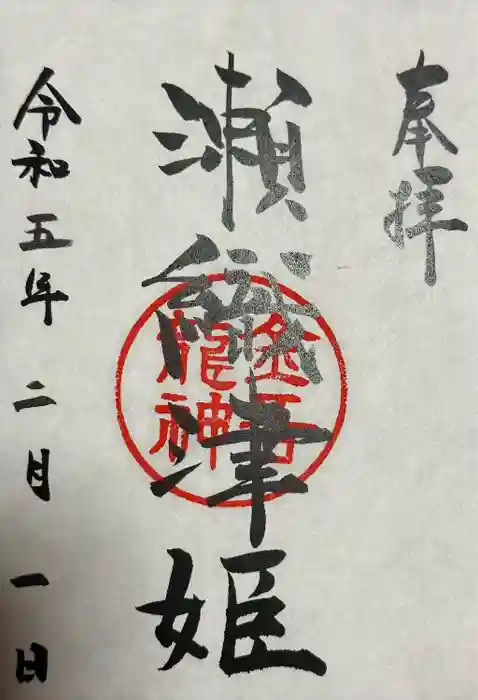 奉拝
瀬織津姫
龍神
令和五年二月一日